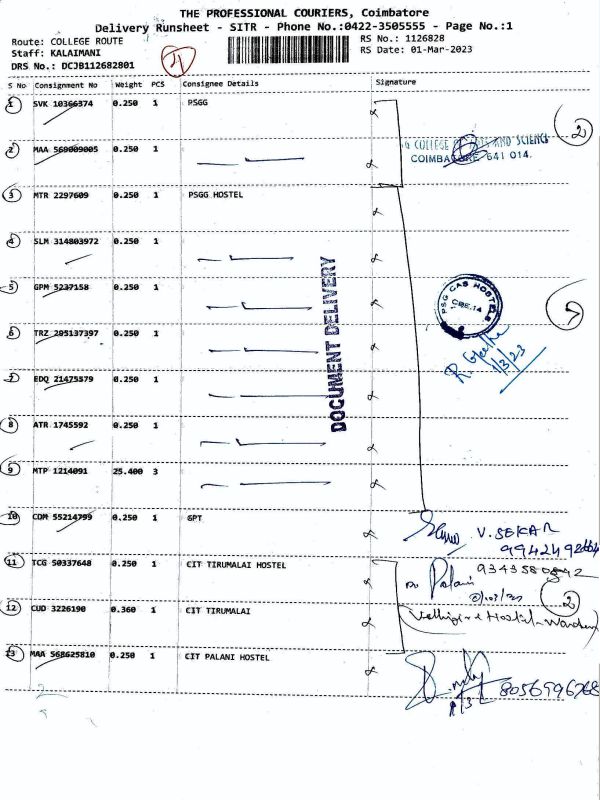 THE PROFESSIONAL COURIERS, Coimbatore
Delivery Runsheet - SITR - Phone No.:0422-3505555 - Page No.:1
Route: COLLEGE ROUTE
RS No.: 1126828
Staff: KALAIMANI
RS Date: 01-Mar-2023
DRS No.: DCJB112682801
S No Consignment No Weight PCS Consignee Details Signature
1 SVK 10366374 0.250 1 PSGG
2 MAA 569009005 0.250 1
COLLEGE OF ARTS AND SCIENCE
COIMBATORE 641 014.
2
3 MTR 2297609 0.250 1 PSGG HOSTEL
4 SLM 314803972 0.250 1
5 GPM 5237158 0.250 1
PSG CAS HOSTELS
CBE.14
7
6 TRZ 295137397 0.250 1
R. Geetha
1/3/23
7 EDQ 21475579 0.250 1
DOCUMENT DELIVERY
8 ATR 1745592 0.250 1
9 MTP 1214091 25.400 3
10 COM 55214799 0.250 1 GPT
V. SEKAR
11 TCG 50337648 0.250 1 CIT TIRUMALAI HOSTEL
Palani
2
12 CUD 3226190 0.360 1 CIT TIRUMALAI
13 MAA 568625810 0.250 1 CIT PALANI HOSTEL
8056996768